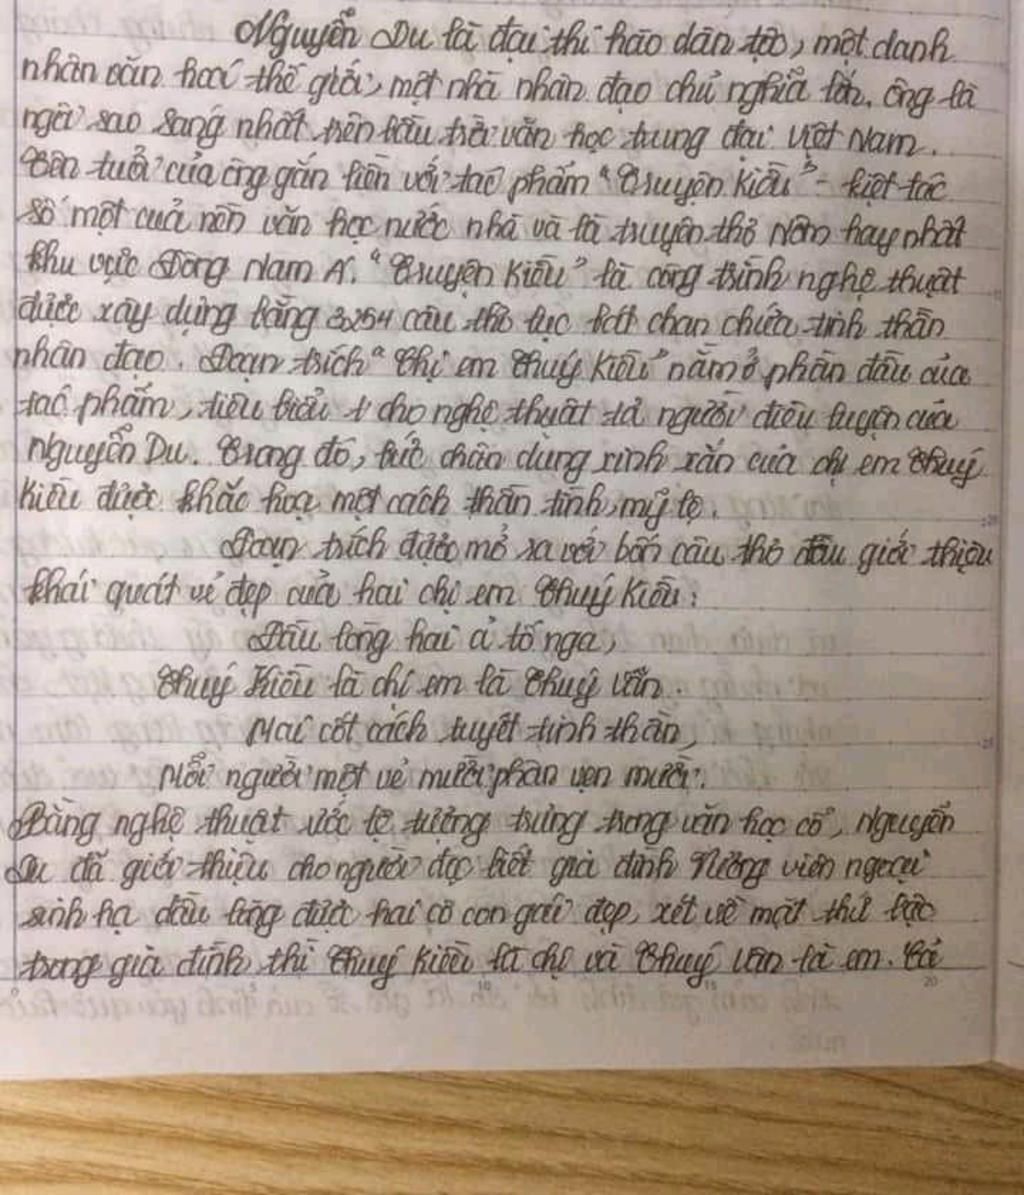 Nguyễn Du là đại thi hào dân tộc, một danh
nhân văn hoá thế giới, một nhà nhân đạo chủ nghĩa lớn. ông là
ngôi sao sáng nhất trên bầu trời văn học trung đại Việt Nam.
Tên tuổi của ông gắn liền với tác phẩm "Truyện Kiều" - kiệt tác
số một của nền văn học nước nhà và là truyện thơ Nôm hay nhất
khu vực Đông Nam Á. "Truyện Kiều" là công trình nghệ thuật
được xây dựng bằng 3254 câu thơ lục bát chan chứa tinh thần
nhân đạo. Đoạn trích "Chị em Thuý Kiều" nằm ở phần đầu của
tác phẩm, tiêu biểu cho nghệ thuật tả người điêu luyện của
Nguyễn Du. Trong đó, bức chân dung xinh xắn của chị em Thuý
Kiều được khắc hoạ một cách thần tình, mỹ lệ.
Đoạn trích được mở ra với bốn câu thơ đầu giới thiệu
khái quát vẻ đẹp của hai chị em Thuý Kiều:
Đầu lòng hai ả tố nga,
Thuý Kiều là chị em là Thuý Vân.
Mai cốt cách tuyết tinh thần,
Mỗi người một vẻ mười phân vẹn mười.
Bằng nghệ thuật ước lệ tượng trưng trong văn học cổ, Nguyễn
Du đã giới thiệu cho người đọc biết gia đình Vương viên ngoại
sinh hạ đầu lòng được hai cô con gái đẹp, xét về mặt thứ bậc
trong gia đình thì Thuý Kiều là chị và Thuý Vân là em. Cả